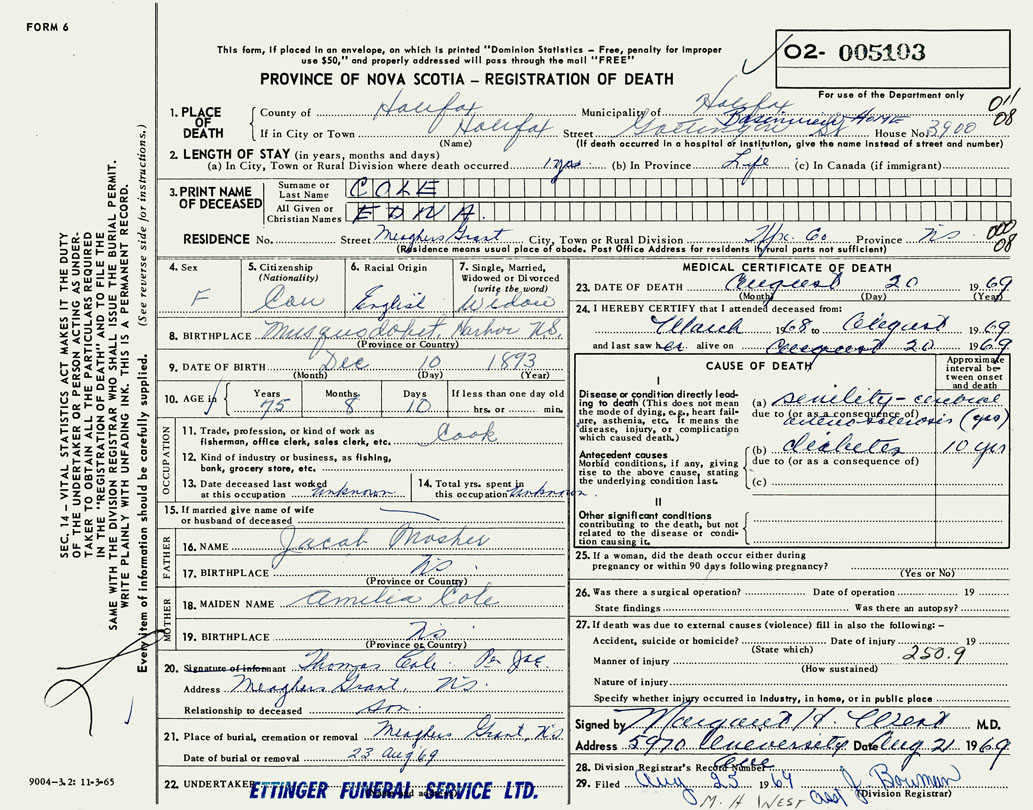 FORM 6
This form, if placed in an envelope, on which is printed "Dominion Statistics – Free, penalty for improper
use $50," and properly addressed will pass through the mail "FREE"
PROVINCE OF NOVA SCOTIA – REGISTRATION OF DEATH
O2- 005103
For use of the Department only
011
08
1. PLACE OF DEATH
County of Halifax Municipality of Halifax
Basinview HOME
If in City or Town Halifax Street Gottingen St House No. 3900
(Name) (If death occurred in a hospital or institution, give the name instead of street and number)
2. LENGTH OF STAY (in years, months and days)
(a) In City, Town or Rural Division where death occurred 1 yr. (b) In Province Life (c) In Canada (if immigrant)
3. PRINT NAME OF DECEASED
Surname or Last Name COLE
All Given or Christian Names EDNA.
RESIDENCE No. Street Meaghers Grant City, Town or Rural Division Hfx. Co Province NS
(Residence means usual place of abode. Post Office Address for residents in rural parts not sufficient)
000
08
4. Sex F
5. Citizenship (Nationality) Can
6. Racial Origin English
7. Single, Married, Widowed or Divorced (write the word) Widow
8. BIRTHPLACE Musquodoboit Harbor N.S.
(Province or Country)
9. DATE OF BIRTH Dec 10 1893
(Month) (Day) (Year)
10. AGE in Years 75 Months 8 Days 10 If less than one day old hrs. or min.
OCCUPATION
11. Trade, profession or kind of work as fisherman, office clerk, sales clerk, etc. Cook
12. Kind of industry or business, as fishing, bank, grocery store, etc.
13. Date deceased last worked at this occupation unknown
14. Total yrs. spent in this occupation unknown
15. If married give name of wife or husband of deceased
FATHER
16. NAME Jacob Mosher
17. BIRTHPLACE NS
(Province or Country)
MOTHER
18. MAIDEN NAME Amelia Cole
19. BIRTHPLACE NS
(Province or Country)
20. Signature of informant Thomas Cole Per
Address Meaghers Grant, NS.
Relationship to deceased son.
21. Place of burial, cremation or removal Meaghers Grant, NS
Date of burial or removal 23 Aug 69
22. UNDERTAKER ETTINGER FUNERAL SERVICE LTD.
9004-3.2: 11-3-65
MEDICAL CERTIFICATE OF DEATH
23. DATE OF DEATH August 20 1969
(Month) (Day) (Year)
24. I HEREBY CERTIFY that I attended deceased from:
March 1968 to August 1969
and last saw her alive on August 20 1969
CAUSE OF DEATH
Approximate interval between onset and death
I
Disease or condition directly leading to death (This does not mean the mode of dying, e.g., heart failure, asthenia, etc. It means the disease, injury, or complication which caused death.)
(a) senility - cerebral
due to (or as a consequence of)
arteriosclerosis (yrs)
Antecedent causes
Morbid conditions, if any, giving rise to the above cause, stating the underlying condition last.
(b) diabetes 10 yrs
due to (or as a consequence of)
(c)
II
Other significant conditions contributing to the death, but not related to the disease or condition causing it.
25. If a woman, did the death occur either during pregnancy or within 90 days following pregnancy?
(Yes or No)
26. Was there a surgical operation? Date of operation 19
State findings Was there an autopsy?
27. If death was due to external causes (violence) fill in also the following: –
Accident, suicide or homicide? Date of injury 19
(State which)
250.9
Manner of injury
(How sustained)
Nature of injury
Specify whether injury occurred in industry, in home, or in public place
Signed by Margaret H. West M.D.
Address 5970 University Ave Date Aug 21 1969
28. Division Registrar's Record Number
29. Filed Aug 25 1969 J. Bowman
(Division Registrar)
M. H WEST
SEC. 14 – VITAL STATISTICS ACT MAKES IT THE DUTY
OF THE UNDERTAKER OR PERSON ACTING AS UNDER-
TAKER TO OBTAIN ALL THE PARTICULARS REQUIRED
IN THE "REGISTRATION OF DEATH" AND TO FILE THE
SAME WITH THE DIVISION REGISTRAR WHO SHALL ISSUE THE BURIAL PERMIT.
WRITE PLAINLY WITH UNFADING INK. THIS IS A PERMANENT RECORD.
Every item of information should be carefully supplied. (See reverse side for instructions.)